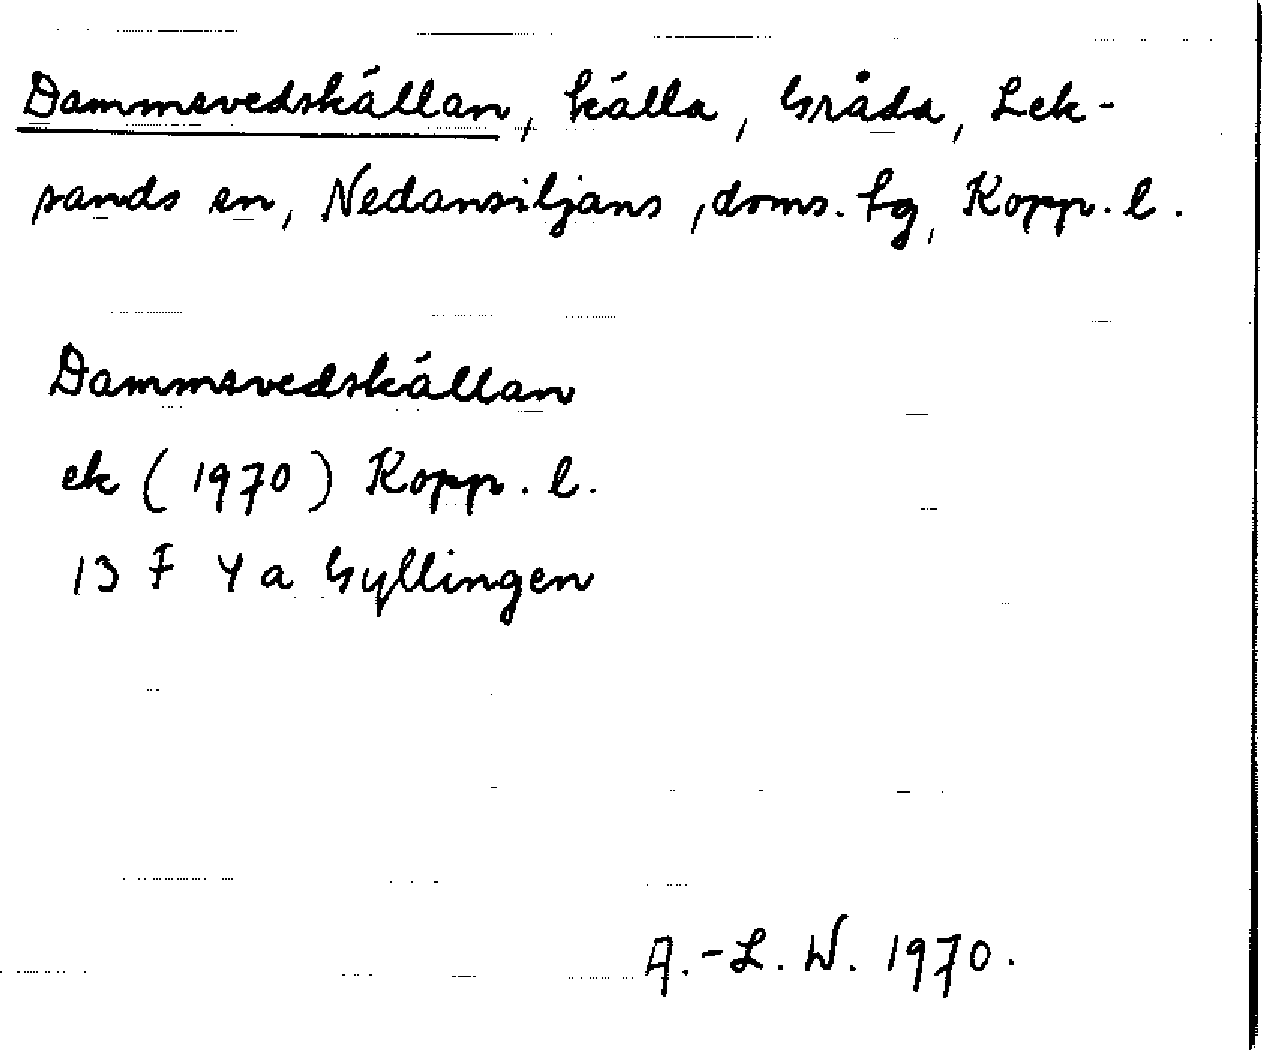 Dammsvedskällan, källa, Gråda, Lek-
sands sn, Nedansiljans, doms. fg, Kopp. l.
Dammsvedskällan
ek (1970) Kopp. l.
13 F 4 a Gyllingen
A.-L. W. 1970.